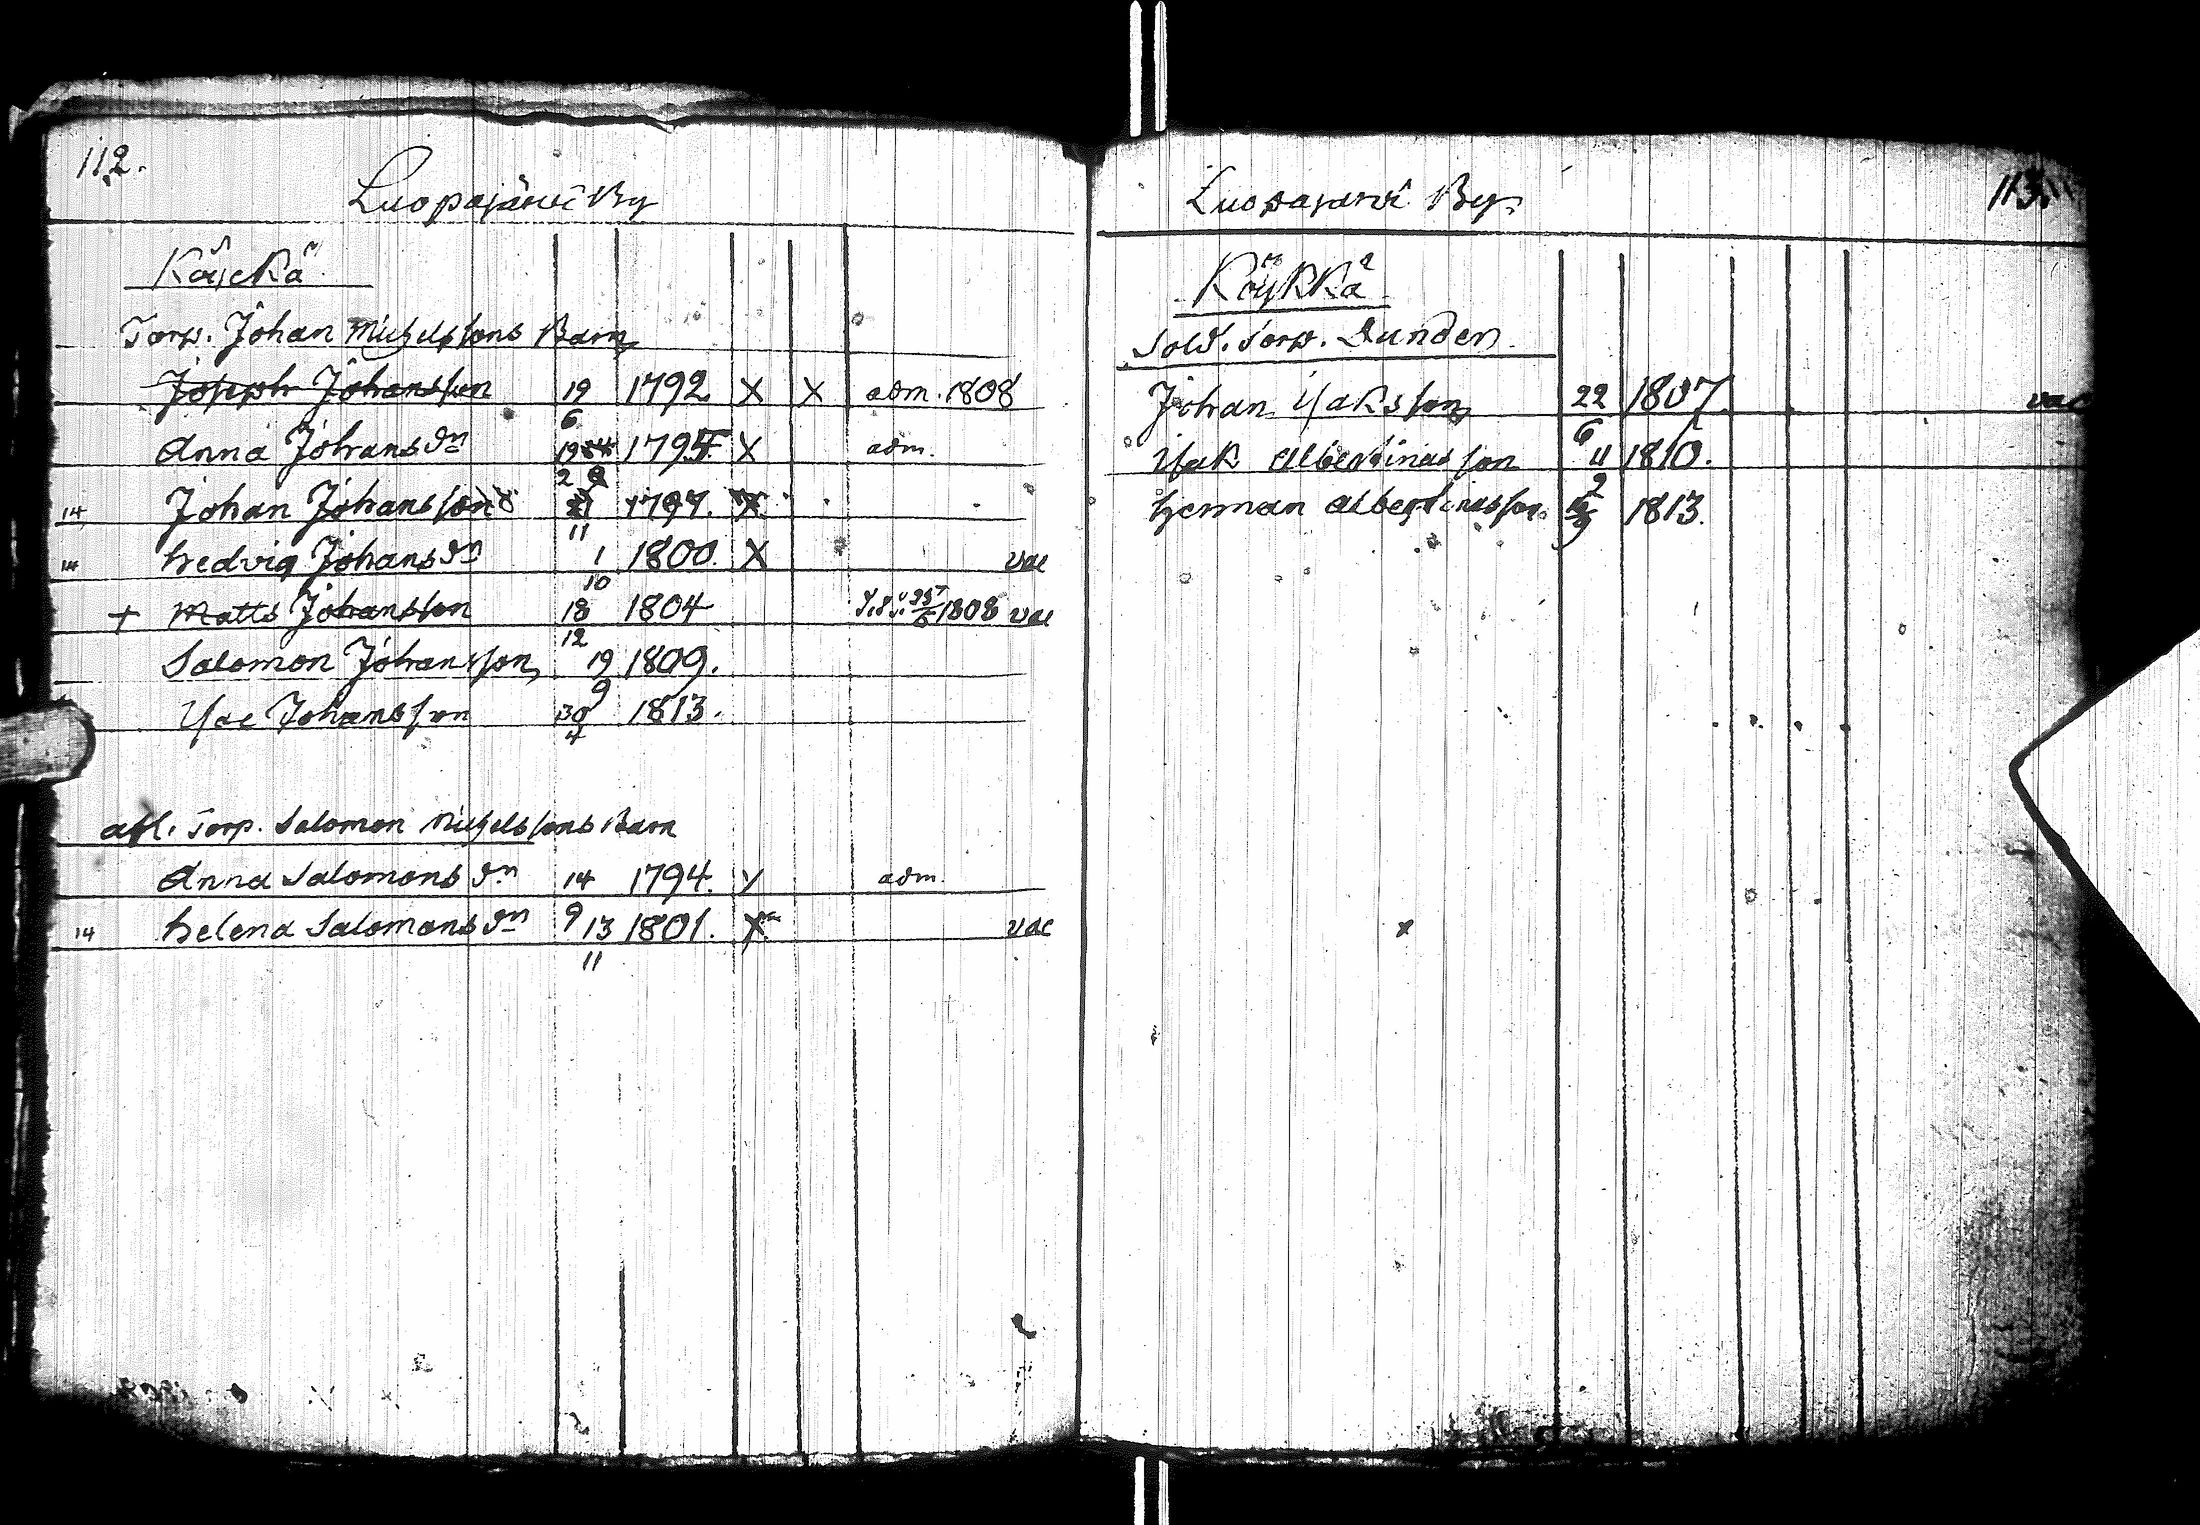 112.
Luopajärvi By
Köyckä
Torp. Johan Michelssons Barn
Joseph Johansson 19/6 1792 X X adm. 1808
Anna Johansdn 19/2 1795 X adm.
14 Johan Johansson 11 1797. X
14 Hedvig Johansdn 1/10 1800. X vac
+ Matts Johansson 18/12 1804 1808 vac
Salomon Johansson 19/9 1809.
Isac Johansson 30/4 1813.
afl. Torp. Salomon Michelssons Barn
Anna Salomonsdn 14/9 1794. X adm.
14 Helena Salomonsdn 13/11 1801. X vac
113.
Luopajärvi By
Köykkä
Sold. Torp. Dunder
Johan Isaksson 22/6 1807 vac
Isak Albertinasson 11/2 1810.
Herman Albertinasson 1813.